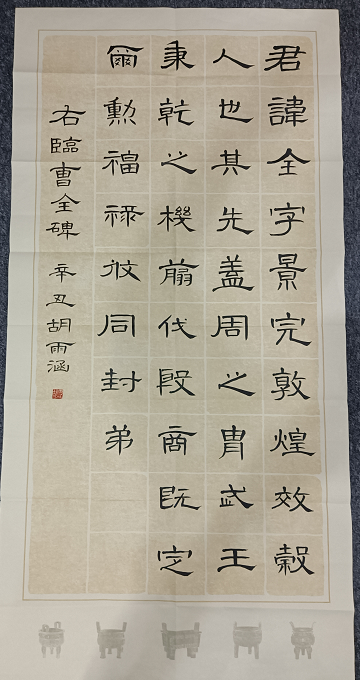 君諱全字景完敦煌效穀
人也其先蓋周之胄武王
秉乾之機翦伐殷商既定
爾勲福祿攸同封弟
右臨曹全碑 辛丑胡雨涵